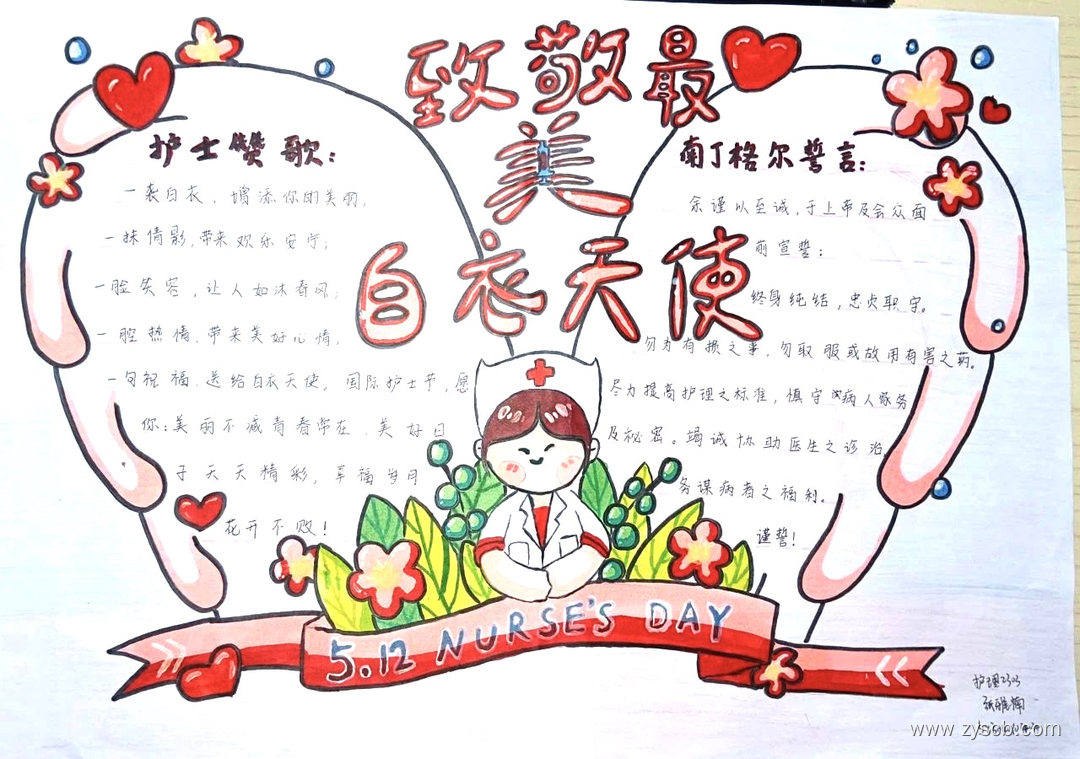 致敬最
美
白衣天使
护士赞歌：
一袭白衣，增添你的美丽，
一抹倩影，带来欢乐安宁；
一脸笑容，让人如沐春风；
一腔热情，带来美好心情，
一句祝福，送给白衣天使。国际护士节，愿
你：美丽不减青春常在，美好日
子天天精彩，幸福岁月
花开不败！
南丁格尔誓言：
余谨以至诚，于上帝及会众面
前宣誓：
终身纯洁，忠贞职守。
勿为有损之事，勿取服或故用有害之药。
尽力提高护理之标准，慎守病人家务
及秘密。竭诚协助医生之诊治，
务谋病者之福利。
谨誓！
5.12 NURSE'S DAY
护理2303
www.zysbb.com